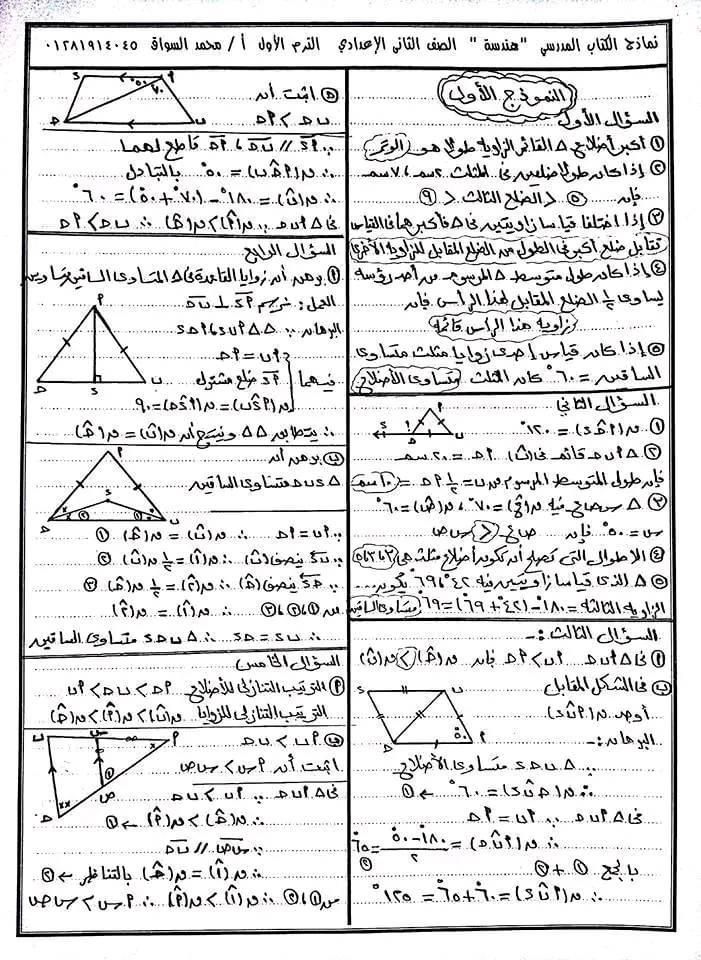 نماذج الكتاب المدرسي " هندسة " الصف الثاني الإعدادي الترم الأول أ / محمد السواق ٠١٢٨١٩١٤٠٤٥
النموذج الأول
السؤال الأول
١ أكبر أضلاع △ القائم الزاوية طولاً هو الوتر
٢ إذا كان طولا ضلعين فى مثلث ٢سم ، ٧سم
فإن ٥ < الضلع الثالث < ٩
٣ إذا اختلفا قياسا زاويتين فى △ فأكبرهما فى القياس
تقابل ضلع أكبر فى الطول من الضلع المقابل للزاوية الأخرى
٤ إذا كان طول متوسط △ المرسوم من أحد رؤسه
يساوى ½ الضلع المقابل لهذا الرأس فإن
زاوية هذا الرأس قائمة
٥ إذا كان قياس إحدى زوايا مثلث متساوى
الساقين = ٦٠° كان المثلث متساوى الأضلاع
السؤال الثاني
١ ق(ﺀﺣ̂P) = ١٢٠°
٢ △ Pبح قائم فى (ب) Pح = ٢٠ سم
فإن طول المتوسط المرسوم من ب = ½ Pح = ١٠ سم
٣ △ س ص ع فيه ق(ع̂) = ٧٠° ، ق(ص̂) = ٦٠°
س = ٥٠° فإن ص ع < س ص
٤ الاطوال التى تصلح أن تكون أضلاع مثلث هى ٣،٣،٥
٥ △ الذى قياسا زاويتين فيه ٤٢° ، ٦٩° يكون
الزاوية الثالثة = ١٨٠° - (٤٢ + ٦٩) = ٦٩° متساوى الساقين
السؤال الثالث :-
فى △ Pبح Pب > Pح فإن ق(ح̂) > ق(ب̂)
ب فى الشكل المقابل
أوجد ق(Pب̂ء)
البرهان :-
∵ △ ءبح متساوى الأضلاع
∴ ق(حب̂ء) = ٦٠° ← ١
فى △ Pبح ∵ Pب = Pح
∴ ق(Pب̂ح) = ١٨٠ - ٥٠ / ٢ = ٦٥° ٢
بالجمع ١ + ٢
∴ ق(Pب̂ء) = ٦٠° + ٦٥° = ١٢٥°
ح اثبت أن
بح > Pح
∵ Pء // بح ، Pح قاطع لهما
∴ ق(Pح̂ب) = ٥٠° بالتبادل
∴ ق(ب̂) = ١٨٠° - (٧٠° + ٥٠°) = ٦٠°
فى △ Pبح ∵ ق(P̂) > ق(ب̂) ∴ بح > Pح
السؤال الرابع
١ برهن أن زوايا القاعدة فى △ المتساوى الساقين متساويتين
العمل : نرسم Pء ⊥ بح
البرهان ∵ △△ Pبء ، Pحء
فيهما
Pب = Pح
Pء ضلع مشترك
ق(Pء̂ب) = ق(Pء̂ح) = ٩٠
∴ يتطابق △△ وينتج أن ق(ب̂) = ق(ح̂)
ب برهن أن
△ ءبح متساوى الساقين
∵ Pب = Pح ∴ ق(ب̂) = ق(ح̂) ١
∵ بء ينصف (ب̂) ∴ ق(١̂) = ½ ق(ب̂) ٢
∵ حء ينصف (ح̂) ∴ ق(٢̂) = ½ ق(ح̂) ٣
من ١ ، ٢ ، ٣ ∴ ق(١̂) = ق(٢̂)
∴ ءب = ءح ∴ △ ءبح متساوى الساقين
السؤال الخامس
P الترتيب التنازلى للأضلاع Pح > بح > Pب
الترتيب التنازلى للزوايا ق(ب̂) > ق(P̂) > ق(ح̂)
ب Pب > بح
اثبت أن Pس > س ص
فى △ Pبح ∵ Pب > بح
∴ ق(ح̂) > ق(P̂) ← ١
∵ س ص // بح
∴ ق(١̂) = ق(ح̂) بالتناظر ← ٢
من ١ ، ٢ ∴ ق(١̂) > ق(P̂) ∴ Pس > س ص